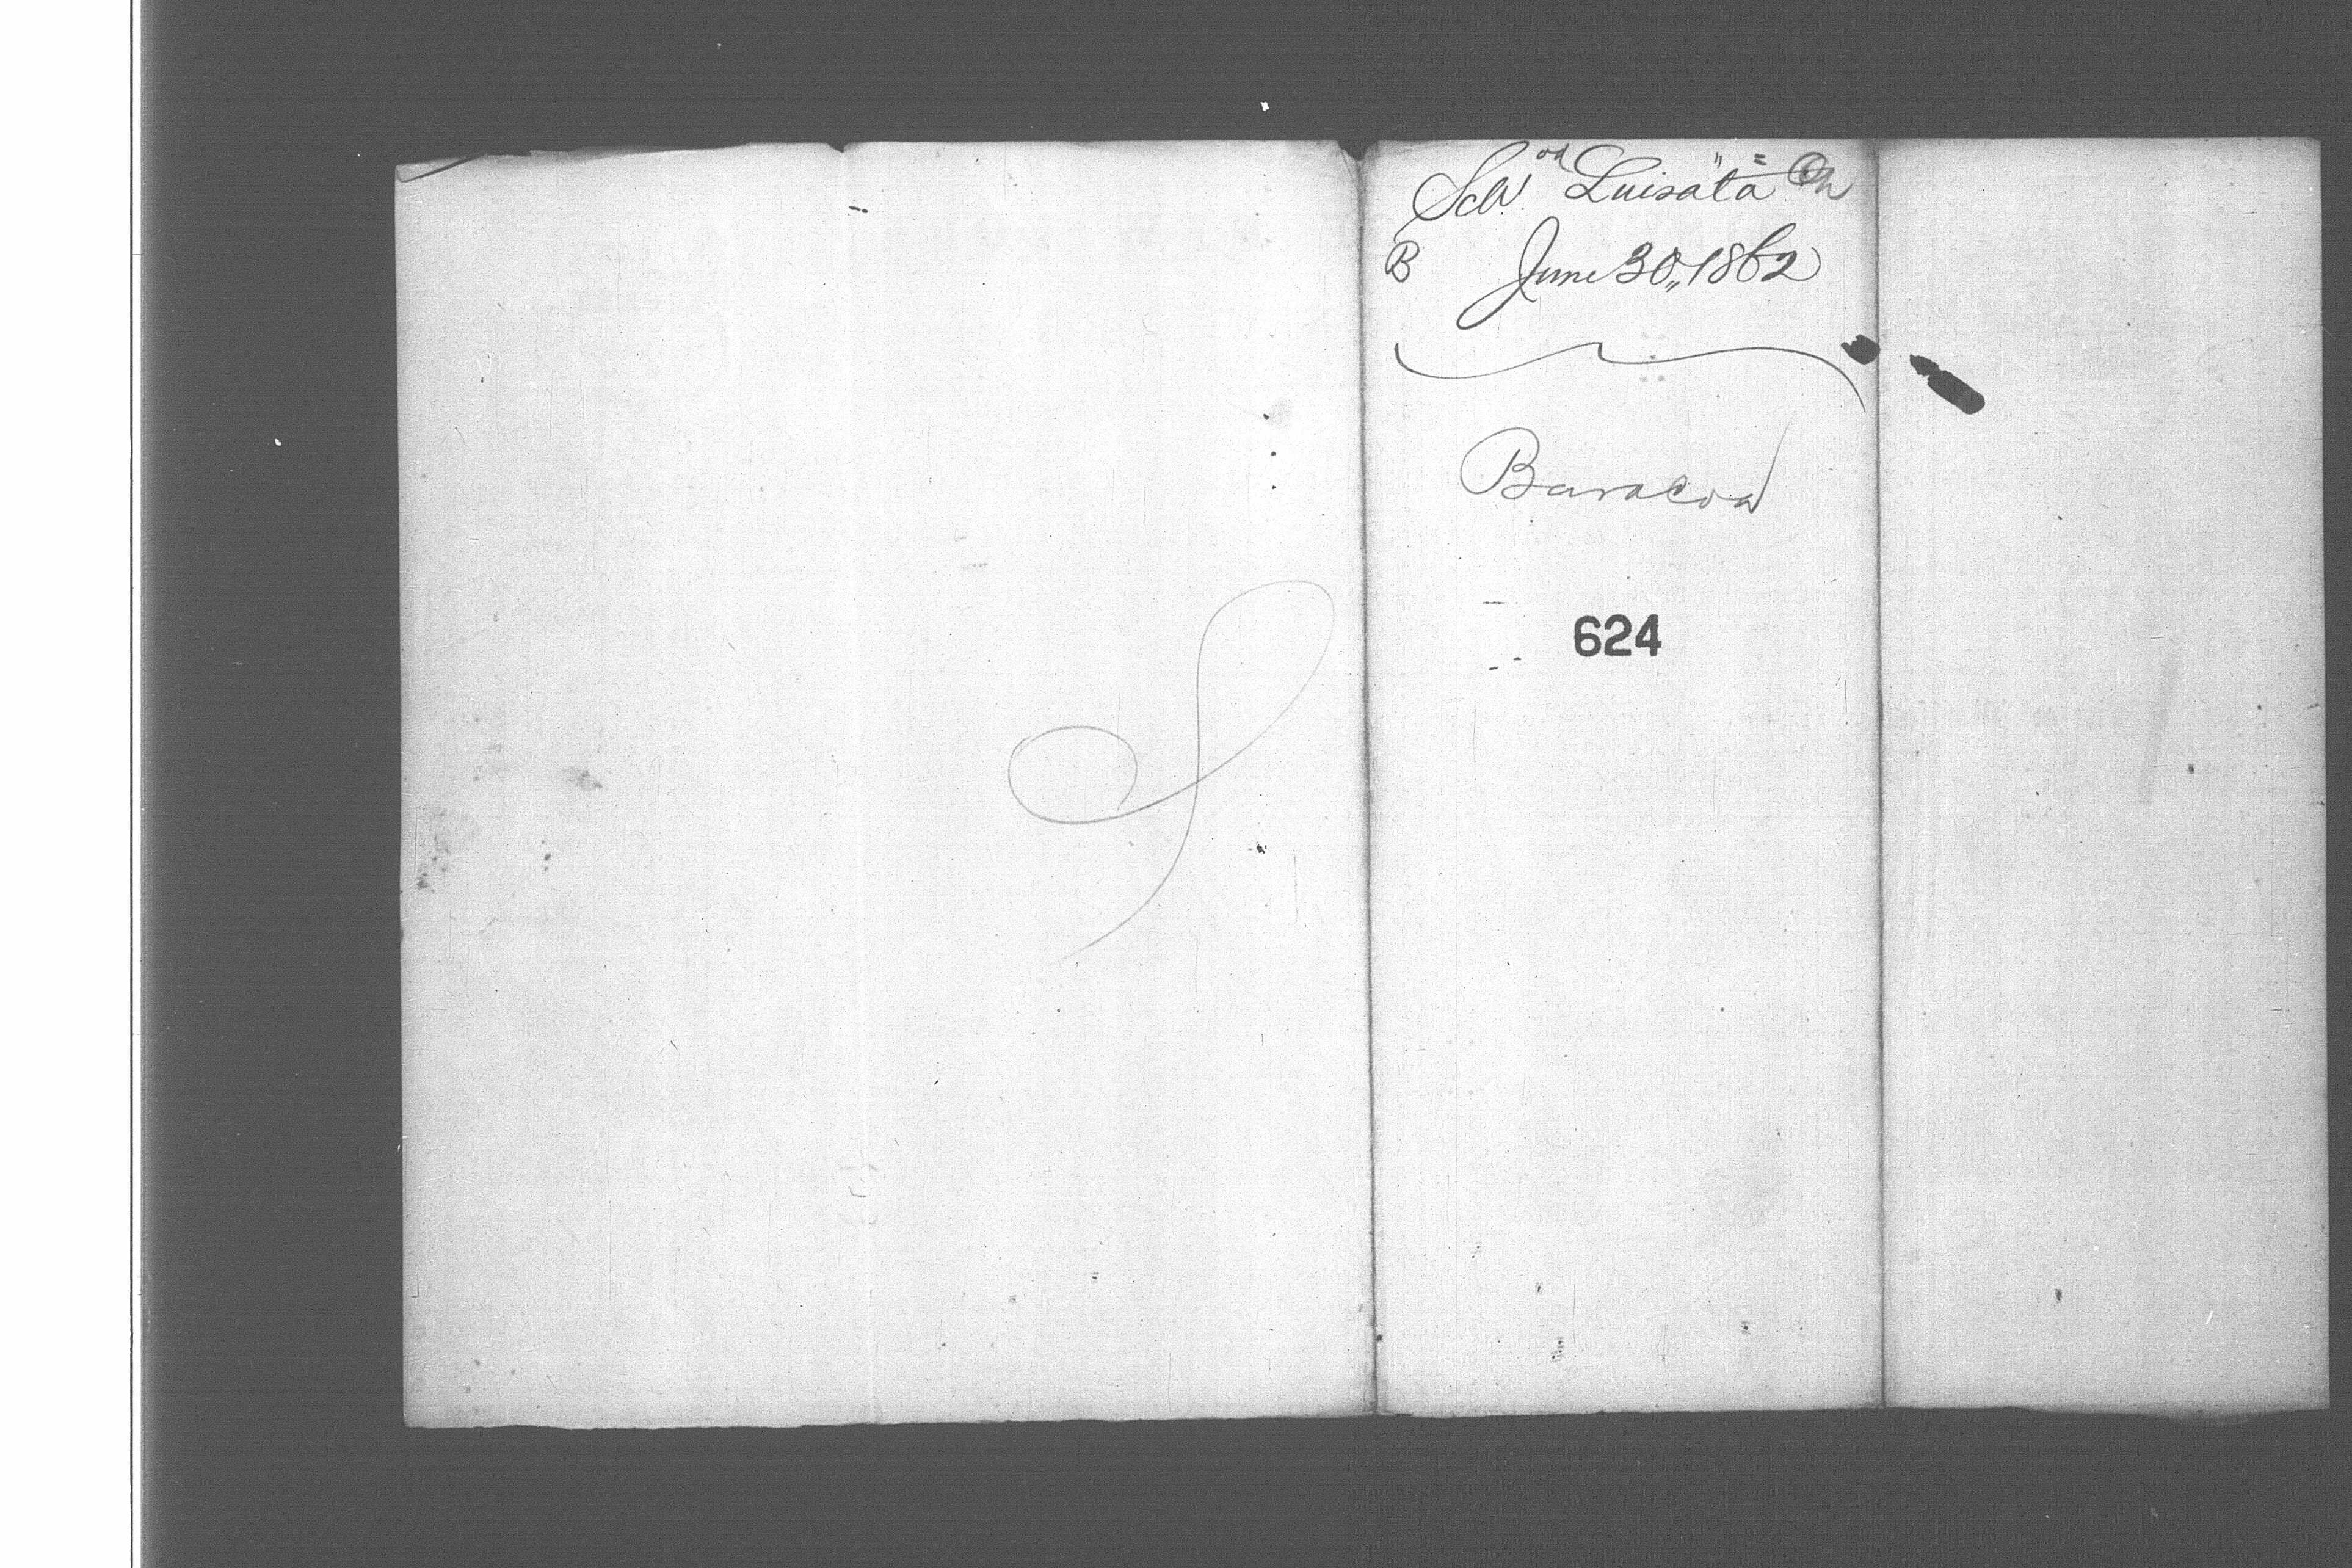 Sch. "Luisata"
B June 30, 1862
Baracoa
624